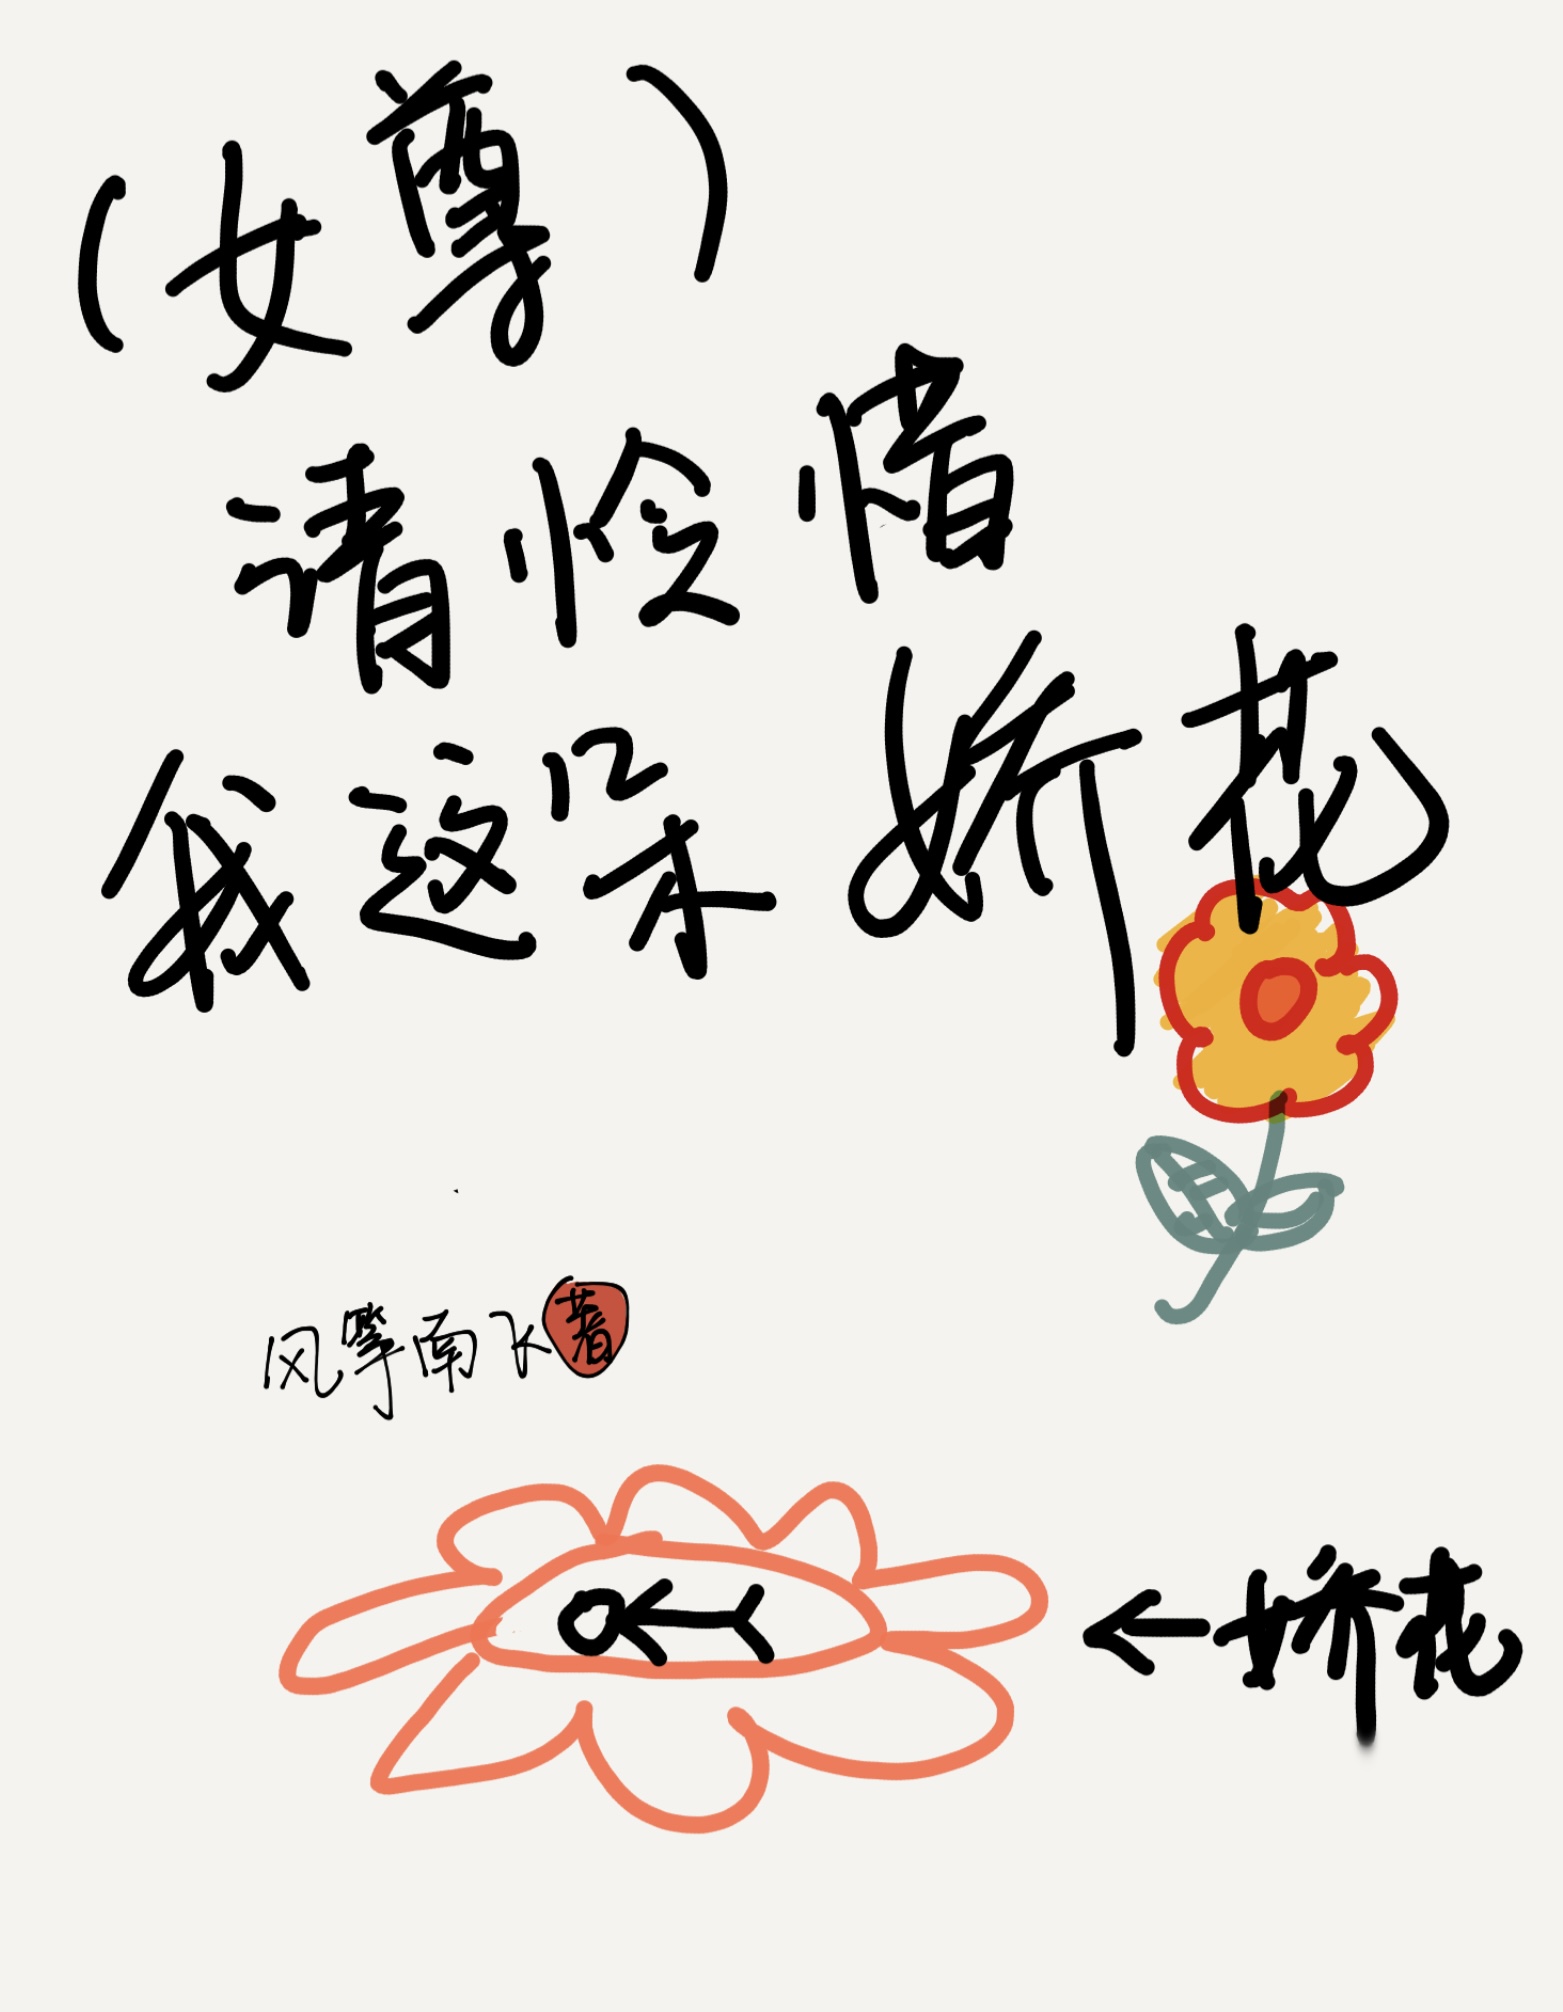 (女尊)
请怜惜
我这朵娇花
风擎南飞著
←娇花